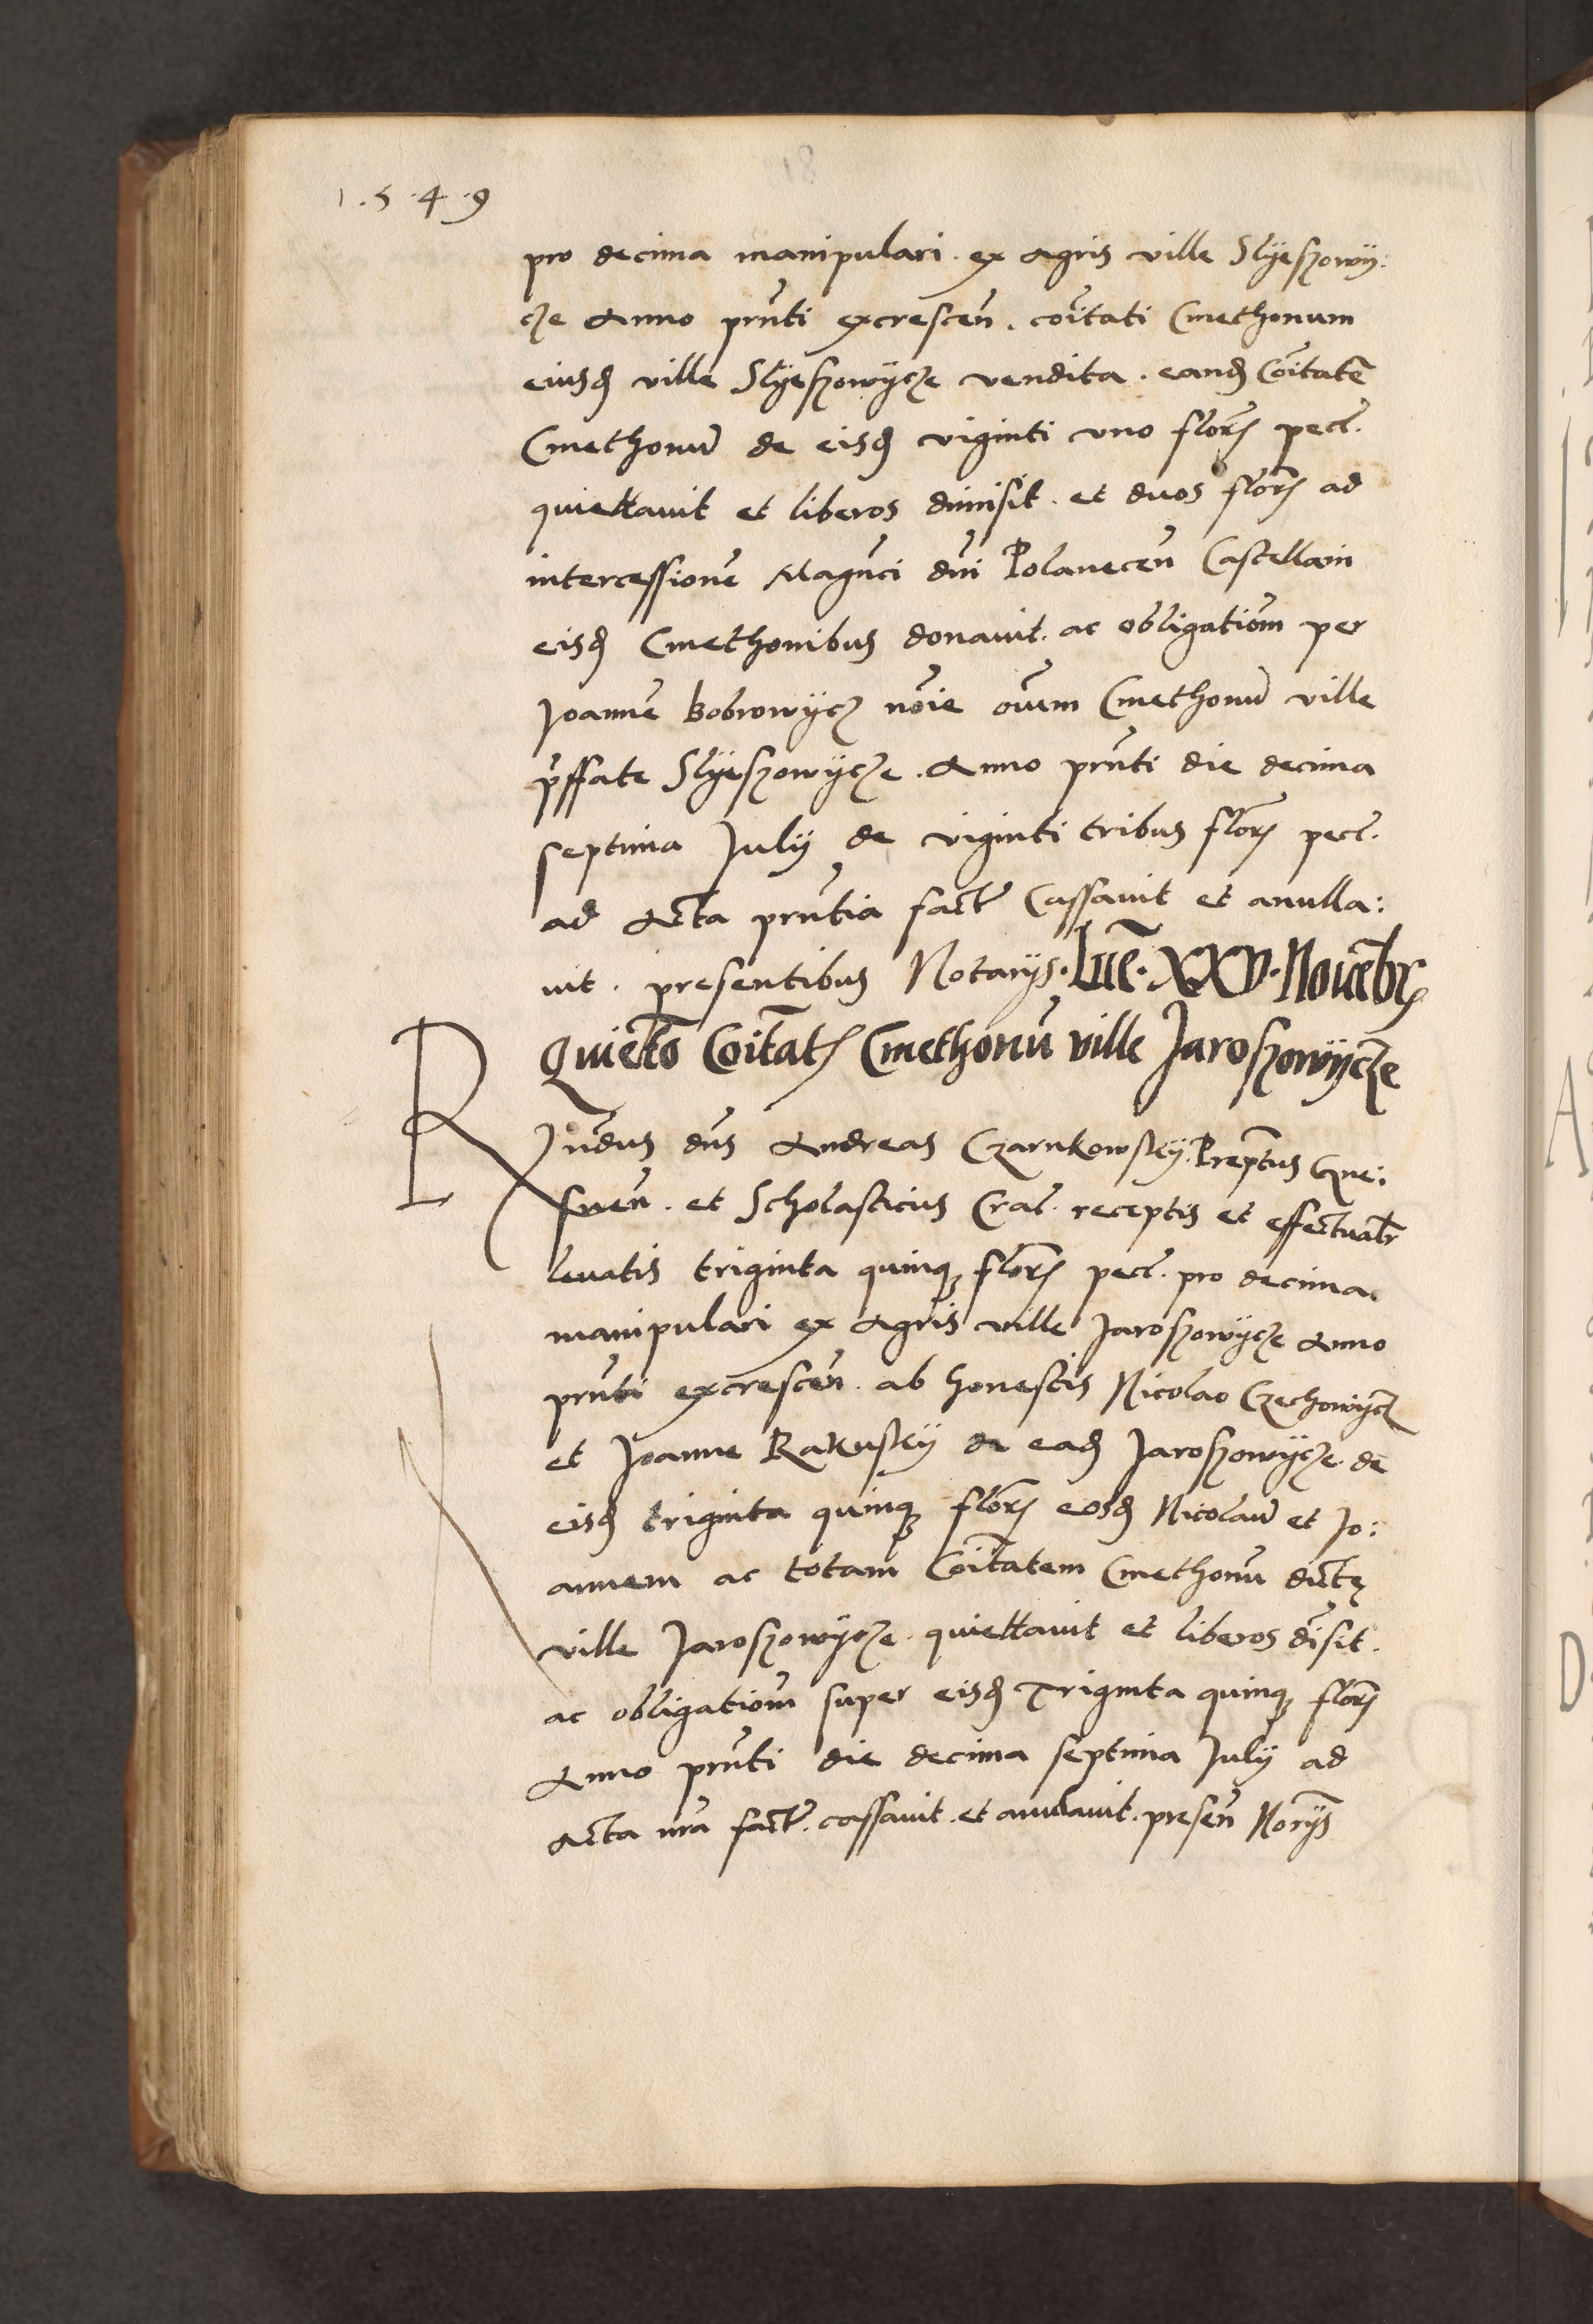 1.5.4.9
pro decima manipulari. ex agris ville Slyeszowy:
cze Anno pñti excrescen̄. coı̄tati Cmethonum
eiusd ville Slyeszowycze vendita. eand Coı̄tatē
Cmethonū de eisd viginti vno florꝭ pecl.
quiettauit et liberos dimisit. et duos florꝭ ad
intercessionē Magnci dn̄i Polanecen̄ Castellani
eisd Cmethonibus donauit. ac obligatiom̄ per
Joannē Bobrowycz noı̄e om̄em Cmethonū ville
p̄ffate Slyeszowycze. Anno pñti die decima
septima July de viginti tribus florꝭ pecl.
ad Acta pñtia fact̄ Cassauit et anulla:
uit. presentibus Notarys. Lune. XXV. Nouēbrꝭ
Quietō Coı̄tatꝭ Cmethonū ville Jaroszowycze
Rn̄dus dn̄s Andreas Czarnkowsky. Preptūs Gne:
snen̄. et Scholasticus Cracl. receptis et effectualr̄
leuatis triginta quinqꝫ florꝭ pecl. pro decima
manipulari ex Agris ville Jaroszowycze Anno
pñti excrescen̄. ab honestis Nicolao Czechowycz
et Joanne Rakusky de ead Jaroszowycze. de
eisd triginta quinqꝫ florꝭ eosd Nicolaū et Jo:
annem ac totam Coı̄tatem Cmethonū dictę
ville Jaroszowycze. quiettauit et liberos dīsit.
ac obligatiom̄ super eisd Triginta quinqꝫ florꝭ
Anno pñti die decima septima July ad
Acta nr̄a fact̄. cassauit. et anulauit. presen̄ Norys̄